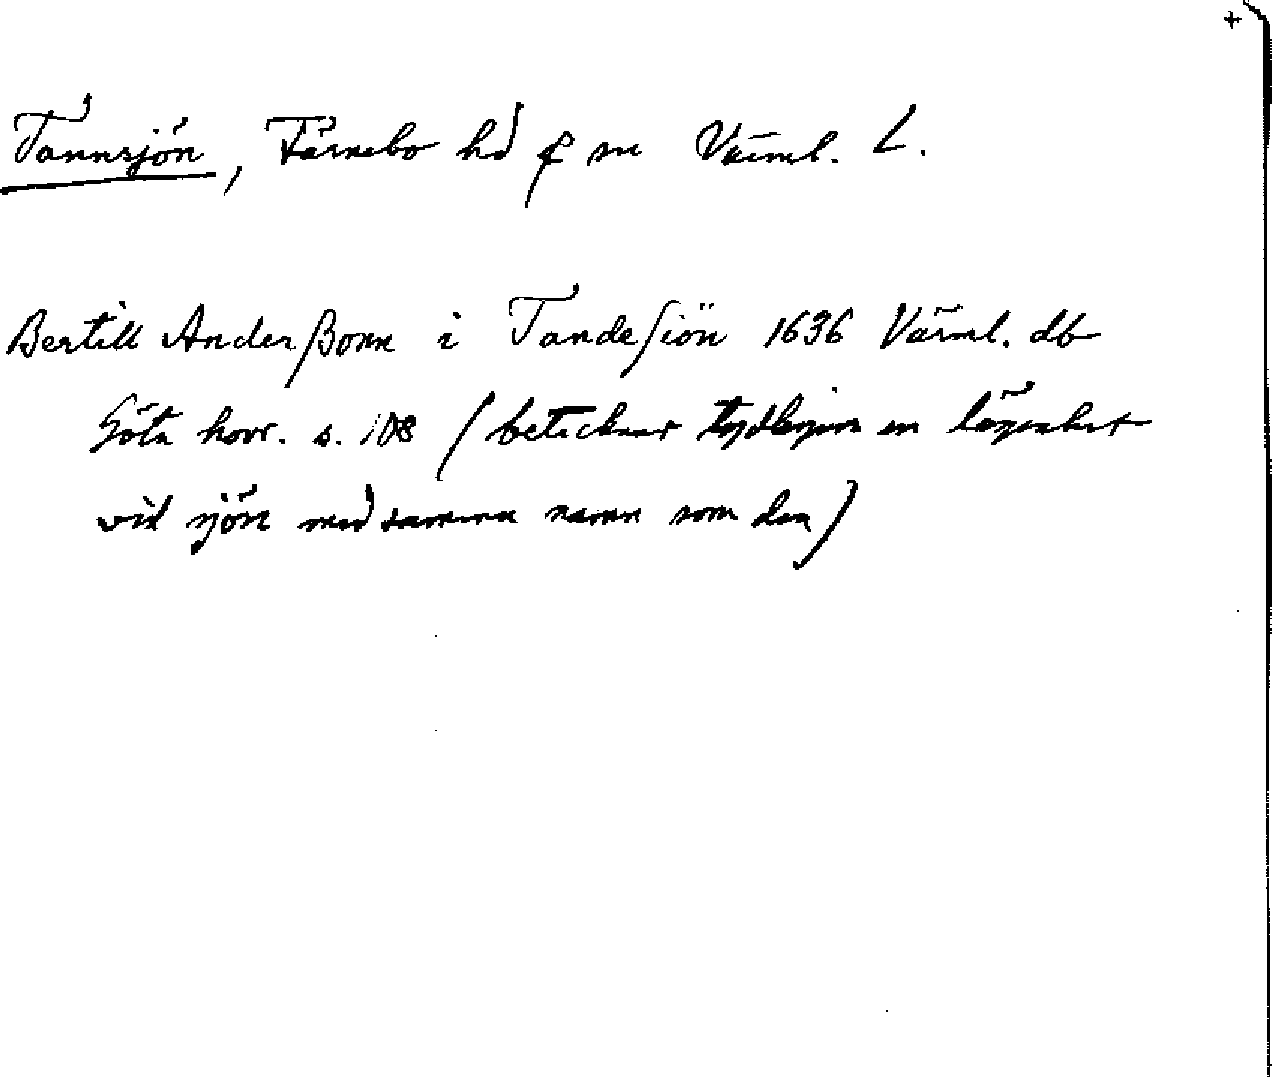 +
Tannsjön, Färnebo hd f m Värml. L.
Bertill Anderßonn i Tandesiön 1636 Värml. db
Göta hovr. s. 108 (betecknar tydligen en lägenhet
vid sjön med samma namn som den)